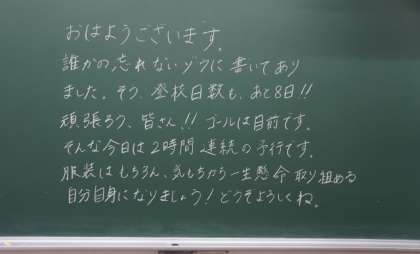 おはようございます。
誰かの忘れないゾウに書いてあり
ました。そう、登校日数も、あと8日!!
頑張ろう、皆さん!!ゴールは目前です。
そんな今日は2時間連続の予行です。
服装はもちろん、気もちから一生懸命取り組める
自分自身になりましょう!どうぞよろしくね。